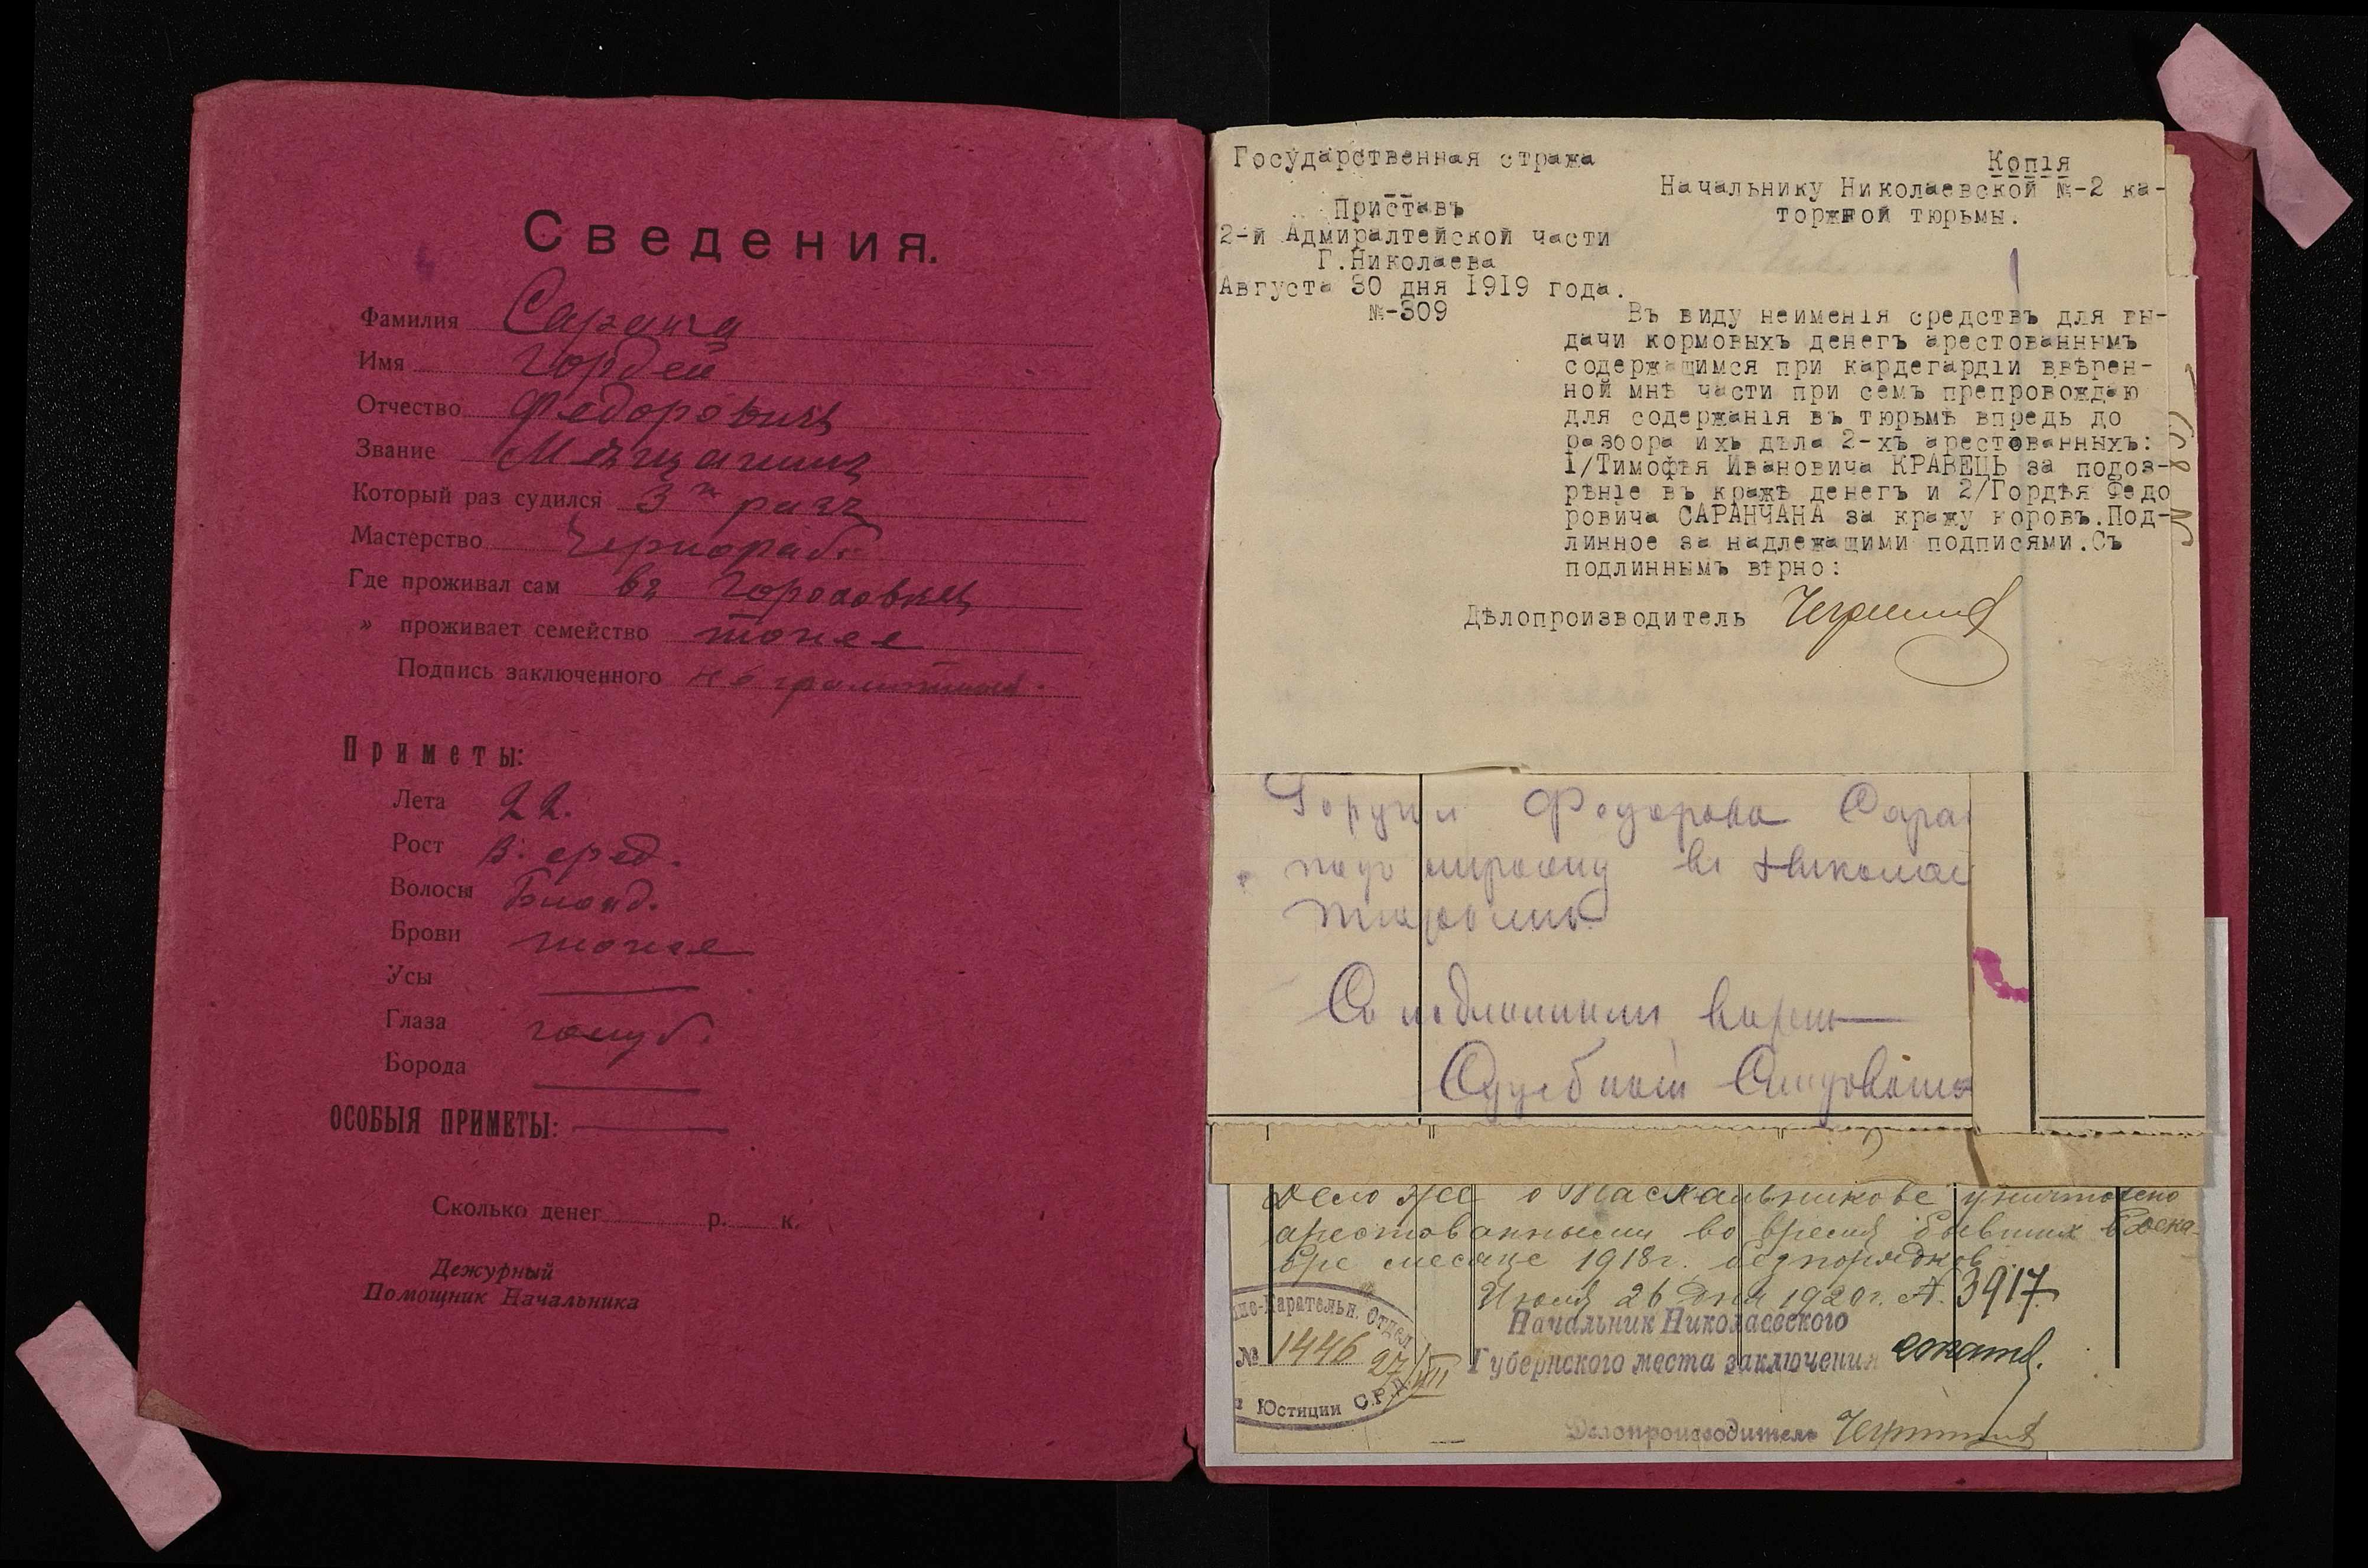 Сведения.
Фамилия Саранча
Имя Гордей
Отчество Федоровичъ
Звание Мѣщанинъ
Который раз судился 3й разъ
Мастерство Чернораб.
Где проживал сам въ Гороховкѣ
» проживает семейство тоже
Подпись заключенного неграмотный.
Приметы:
Лета 22.
Рост в. сред.
Волосы Блонд.
Брови тоже
Усы
Глаза голуб.
Борода
ОСОБЫЯ ПРИМЕТЫ:
Сколько денег р. к.
Дежурный
Помощник Начальника
Государственная стража
Приставъ
2-й Адмиралтейской части
Г.Николаева
Августа 30 дня 1919 года.
№-309
Копiя
Начальнику Николаевской №-2 ка-
торжной тюрьмы.
Въ виду неименiя средствъ для вы-
дачи кормовыхъ денегъ арестованнымъ
содержащимся при кардегардiи ввѣрен-
ной мнѣ части при семъ препровождаю
для содержанiя въ тюрьмѣ впредь до
разбора ихъ дѣла 2-хъ арестованныхъ:
1/Тимофѣя Ивановича КРАВЕЦЬ за подоз-
рѣнiе въ кражѣ денегъ и 2/Гордѣя Федо
ровича САРАНЧАНА за кражу коровъ.Под-
линное за надлежащими подписями.Съ
подлиннымъ вѣрно:
Дѣлопроизводитель
Федорова Сара
под стражу в Николае
С подлинным верно
Судебный Следовате
Дело № о Маскальникове уничтожено
арестованными во время бывших в дека-
бре месяце 1918г. безпорядков.
Июля 26 дня 1920г. №. 3917
Начальник Николаевского
Губернского места заключения
Карательн. Отдел
№ 1446
27/VII
Юстиции
Делопроизводитель